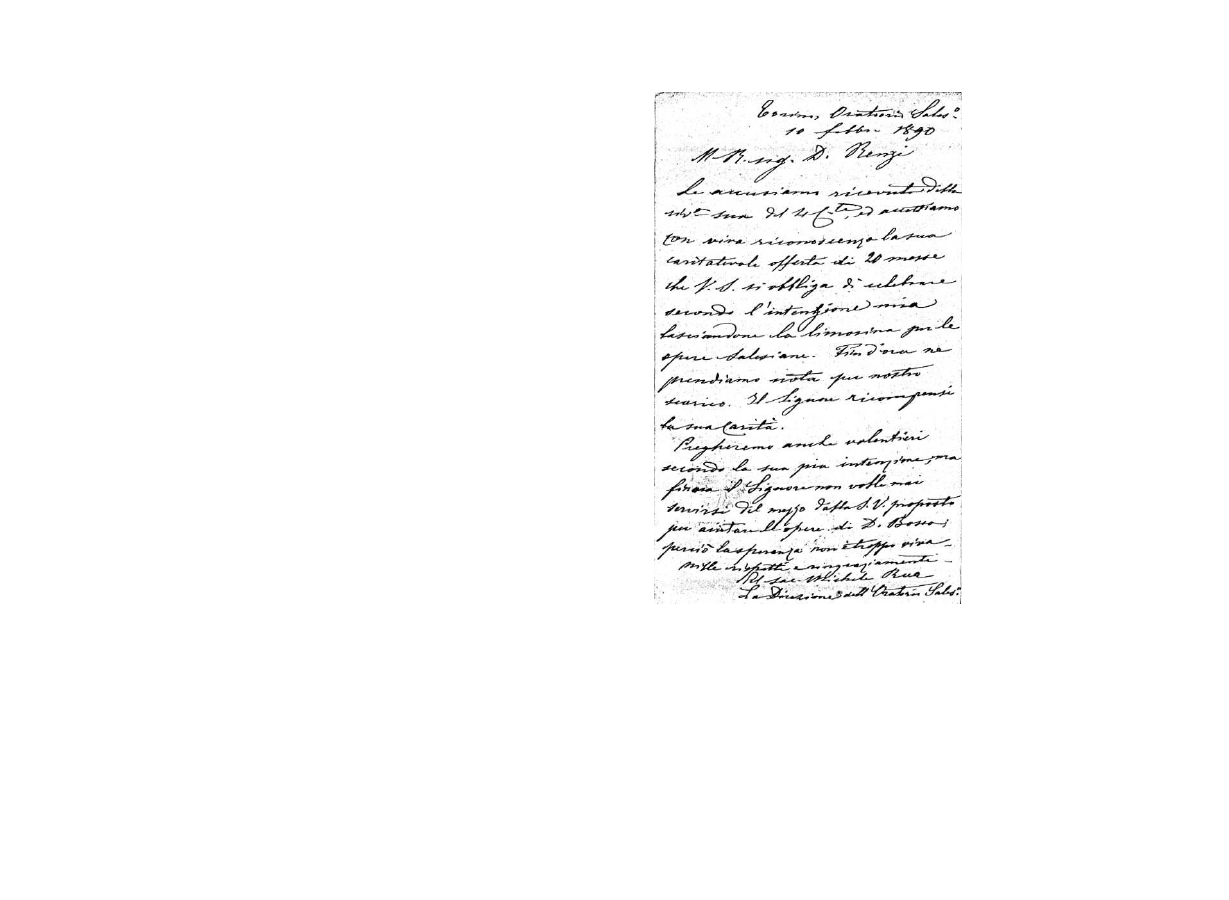 Torino, Oratorio Sales.º
10 febbr. 1890
M. R. sig. D. Renzi
Le accusiamo ricevuta della
sua del 4 C.te, ed accettiamo
con viva riconoscenza la sua
caritatevole offerta di 20 messe
che V. S. si obbliga di celebrare
secondo l'intenzione mia
lasciandone la limosina per le
opere Salesiane. Fin d'ora ne
prendiamo nota per nostro
scarico. Il Signore ricompensi
la sua Carità.
Pregheremo anche volentieri
secondo la sua pia intenzione, ma
finora il Signore non volle mai
servirsi del mezzo dalla S. V. proposto
per aiutare le opere di D. Bosco;
perciò la speranza non è troppo viva_
Mille rispetti e ringraziamenti_
Pel sac. Michele Rua
La Direzione dell'Oratorio Sales.º